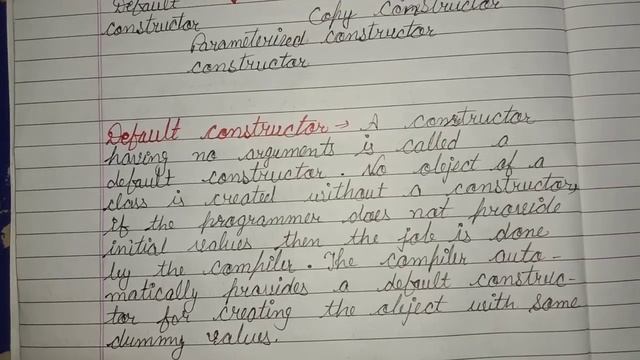 Default
Copy Constructor
constructor
Parameterised constructor
constructor
Default constructor → A constructor
having no arguments is called a
default constructor. No object of a
class is created without a constructor,
if the programmer does not provide
initial values then the job is done
by the compiler. The compiler auto-
matically provides a default construc-
tor for creating the object with some
dummy values.